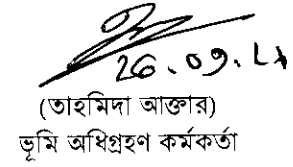 26.09.21
(তাহমিদা আক্তার)
ভূমি অধিগ্রহণ কর্মকর্তা